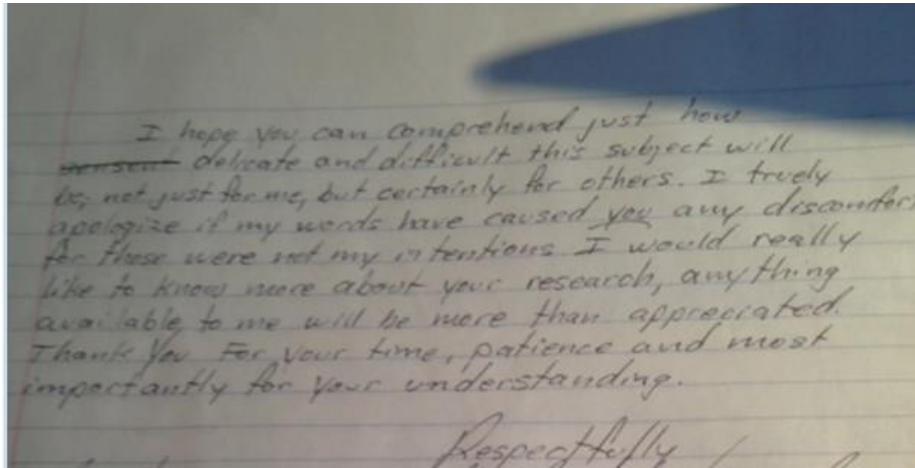 I hope you can comprehend just how
delicate and difficult this subject will
be, not just for me, but certainly for others. I truely
apologize if my words have caused you any discomfort
for those were not my intentions. I would really
like to know more about your research, anything
available to me will be more than appreciated.
Thank you for your time, patience and most
importantly for your understanding.
Respectfully